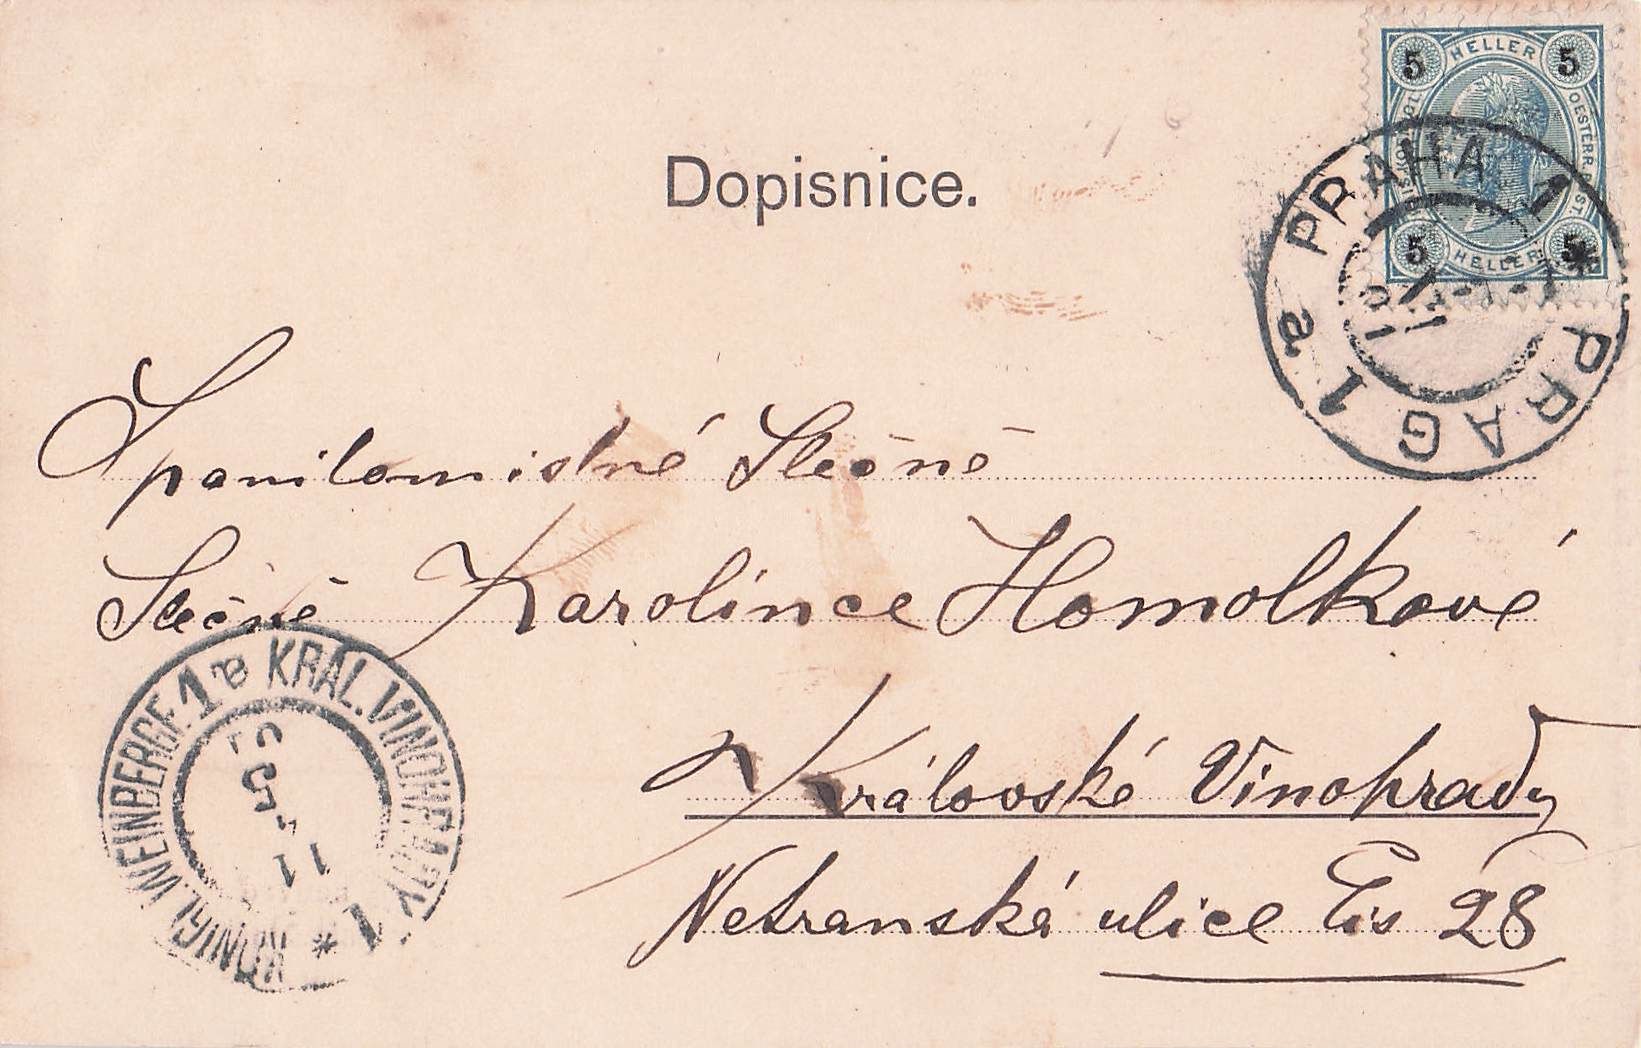 5 HELLER 5
5 HELLER 5
PRAHA 1 * PRAG 1 a
Dopisnice.
Spanilomistné Slečně
Slečně Karolince Homolkové
KRÁL. VINOHRADY 1 * KÖNIGL. WEINBERGE. 1
11
Královské Vinohrady
Netranská ulice Čis 28